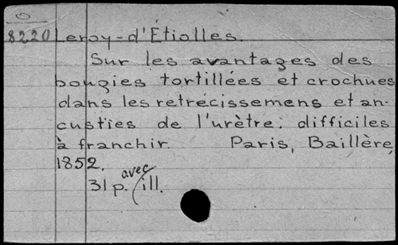 8220 Leroy-d'Étiolles.
Sur les avantages des
bougies tortillées et crochues
dans les retrécissemens et an-
custies de l'urètre: difficiles
à franchir. Paris, Baillère,
1852.
31 p. avec ill.